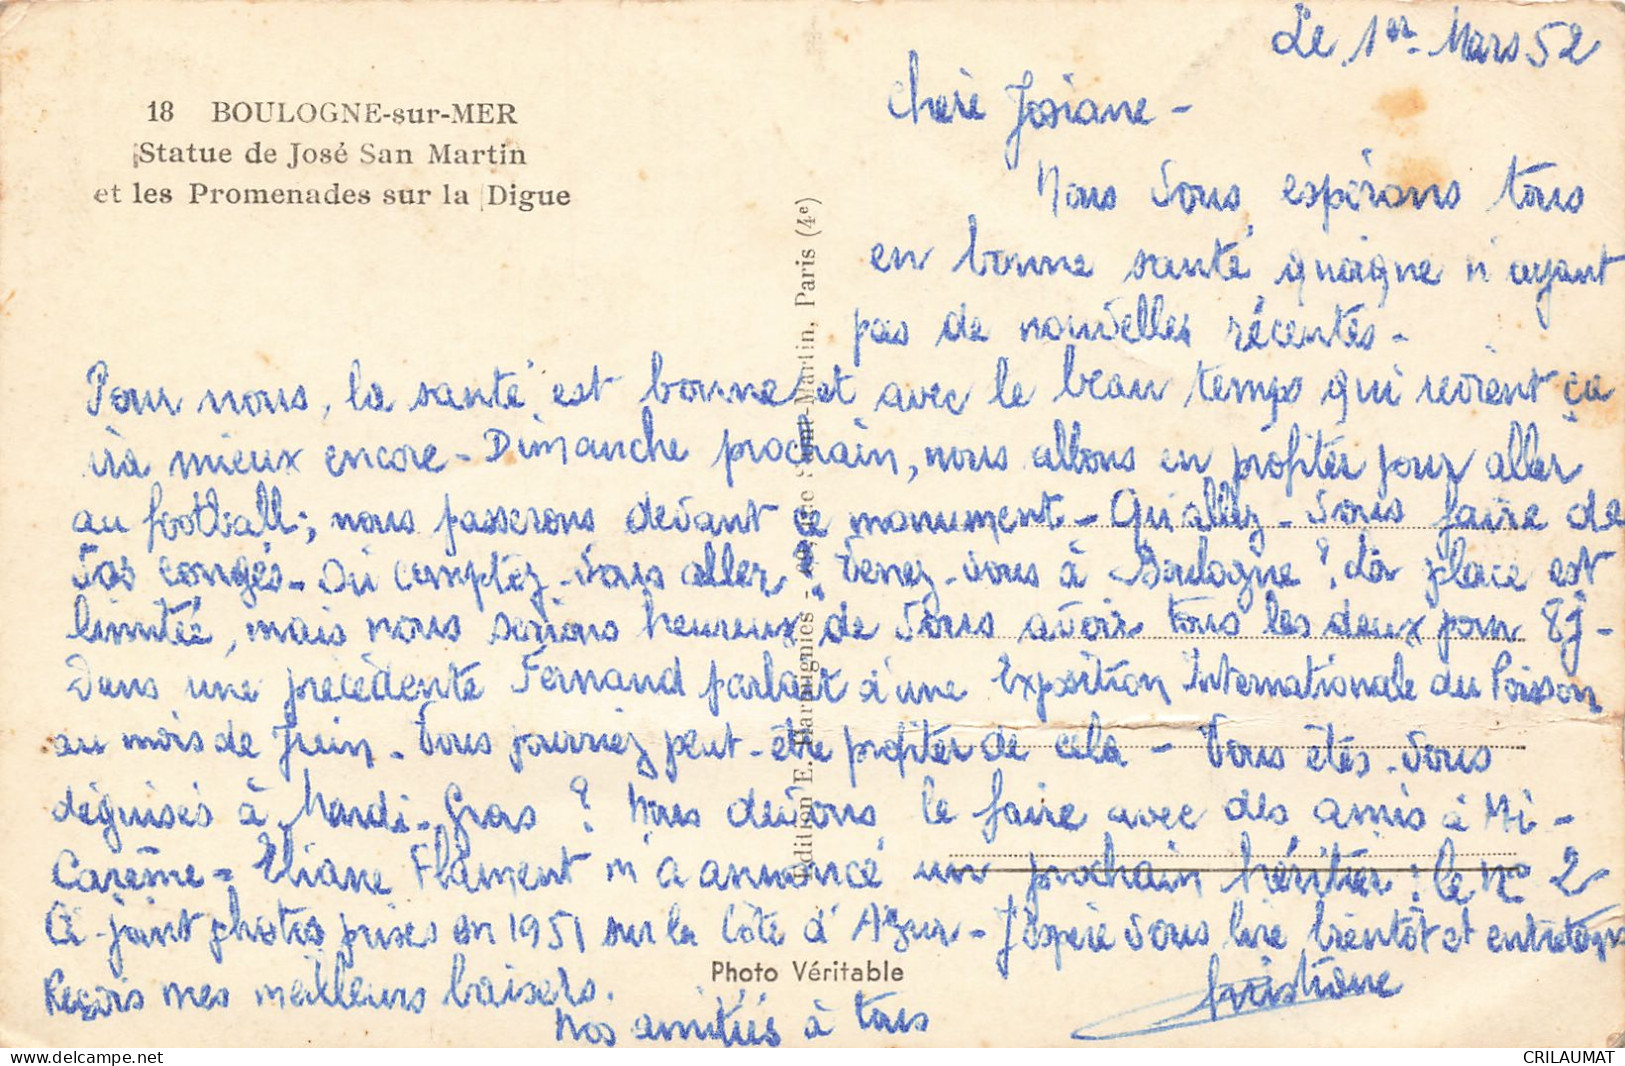 18 BOULOGNE-sur-MER
Statue de José San Martin
et les Promenades sur la Digue
Edition E. Marquignies - Saint-Martin, Paris (4e)
Le 1er Mars 52
Chère Josiane -
Nous vous espérons tous
en bonne santé quoique n'ayant
pas de nouvelles récentes -
Pour nous, la santé est bonne et avec le beau temps qui revient ça
ira mieux encore - Dimanche prochain, nous allons en profiter pour aller
au football ; nous passerons devant ce monument - Qu'allez-vous faire de
vos congés - Où comptez-vous aller ? Venez-vous à Boulogne ? La place est
limitée, mais nous serions heureux de vous avoir tous les deux pour 8j -
Dans une précédente Fernand parlait d'une Exposition Internationale du Poisson
au mois de Juin - Vous pourriez peut-être profiter de cela - Vous êtes-vous
déguisés à Mardi-Gras ? Nous devons le faire avec des amis à Mi-
Carême - Eliane Flament m'a annoncé un prochain héritier : le No 2
Ci-joint photos prises en 1951 sur la Côte d'Azur - J'espère vous lire bientôt et entretemps
Reçois mes meilleurs baisers.
Nos amitiés à tous
Christiane
Photo Véritable
CRILAUMAT